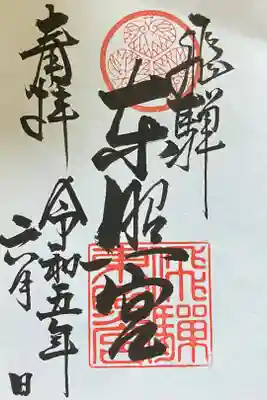 飛騨
東照宮
奉拝
令和五年
六月 日
飛騨東照宮